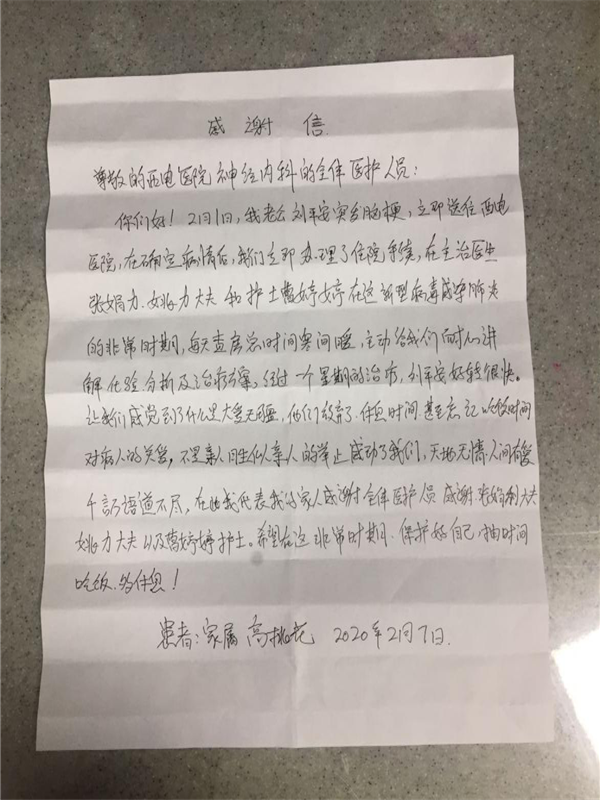 感谢信
尊敬的西电医院神经内科的全体医护人员：
你们好！2月1日，我老公刘平安突发脑梗，立即送住西电
医院，在确定病情后，我们立即办理了住院手续，在主治医生
张娟力、姚力大夫和护士葛婷婷在这新型病毒感染肺炎
的非常时期，每天查房总时间寒问暖，主动给我们耐心讲
解化验分析及治疗方案，经过一个星期的治疗，刘平安好转很快。
让我们感觉到了什么是大爱无疆，他们放弃了休息时间甚至忘记吃饭时间
对病人的关爱，不是亲人胜似亲人的举止感动了我们，天地无情人间有爱
千言万语道不尽，在此我代表我的家人感谢全体医护人员 感谢张娟利大夫
姚力大夫以及葛婷婷护士。希望在这非常时期、保护好自己，抽时间
吃饭、多休息！
患者：家属 高桃花 2020年2月7日.